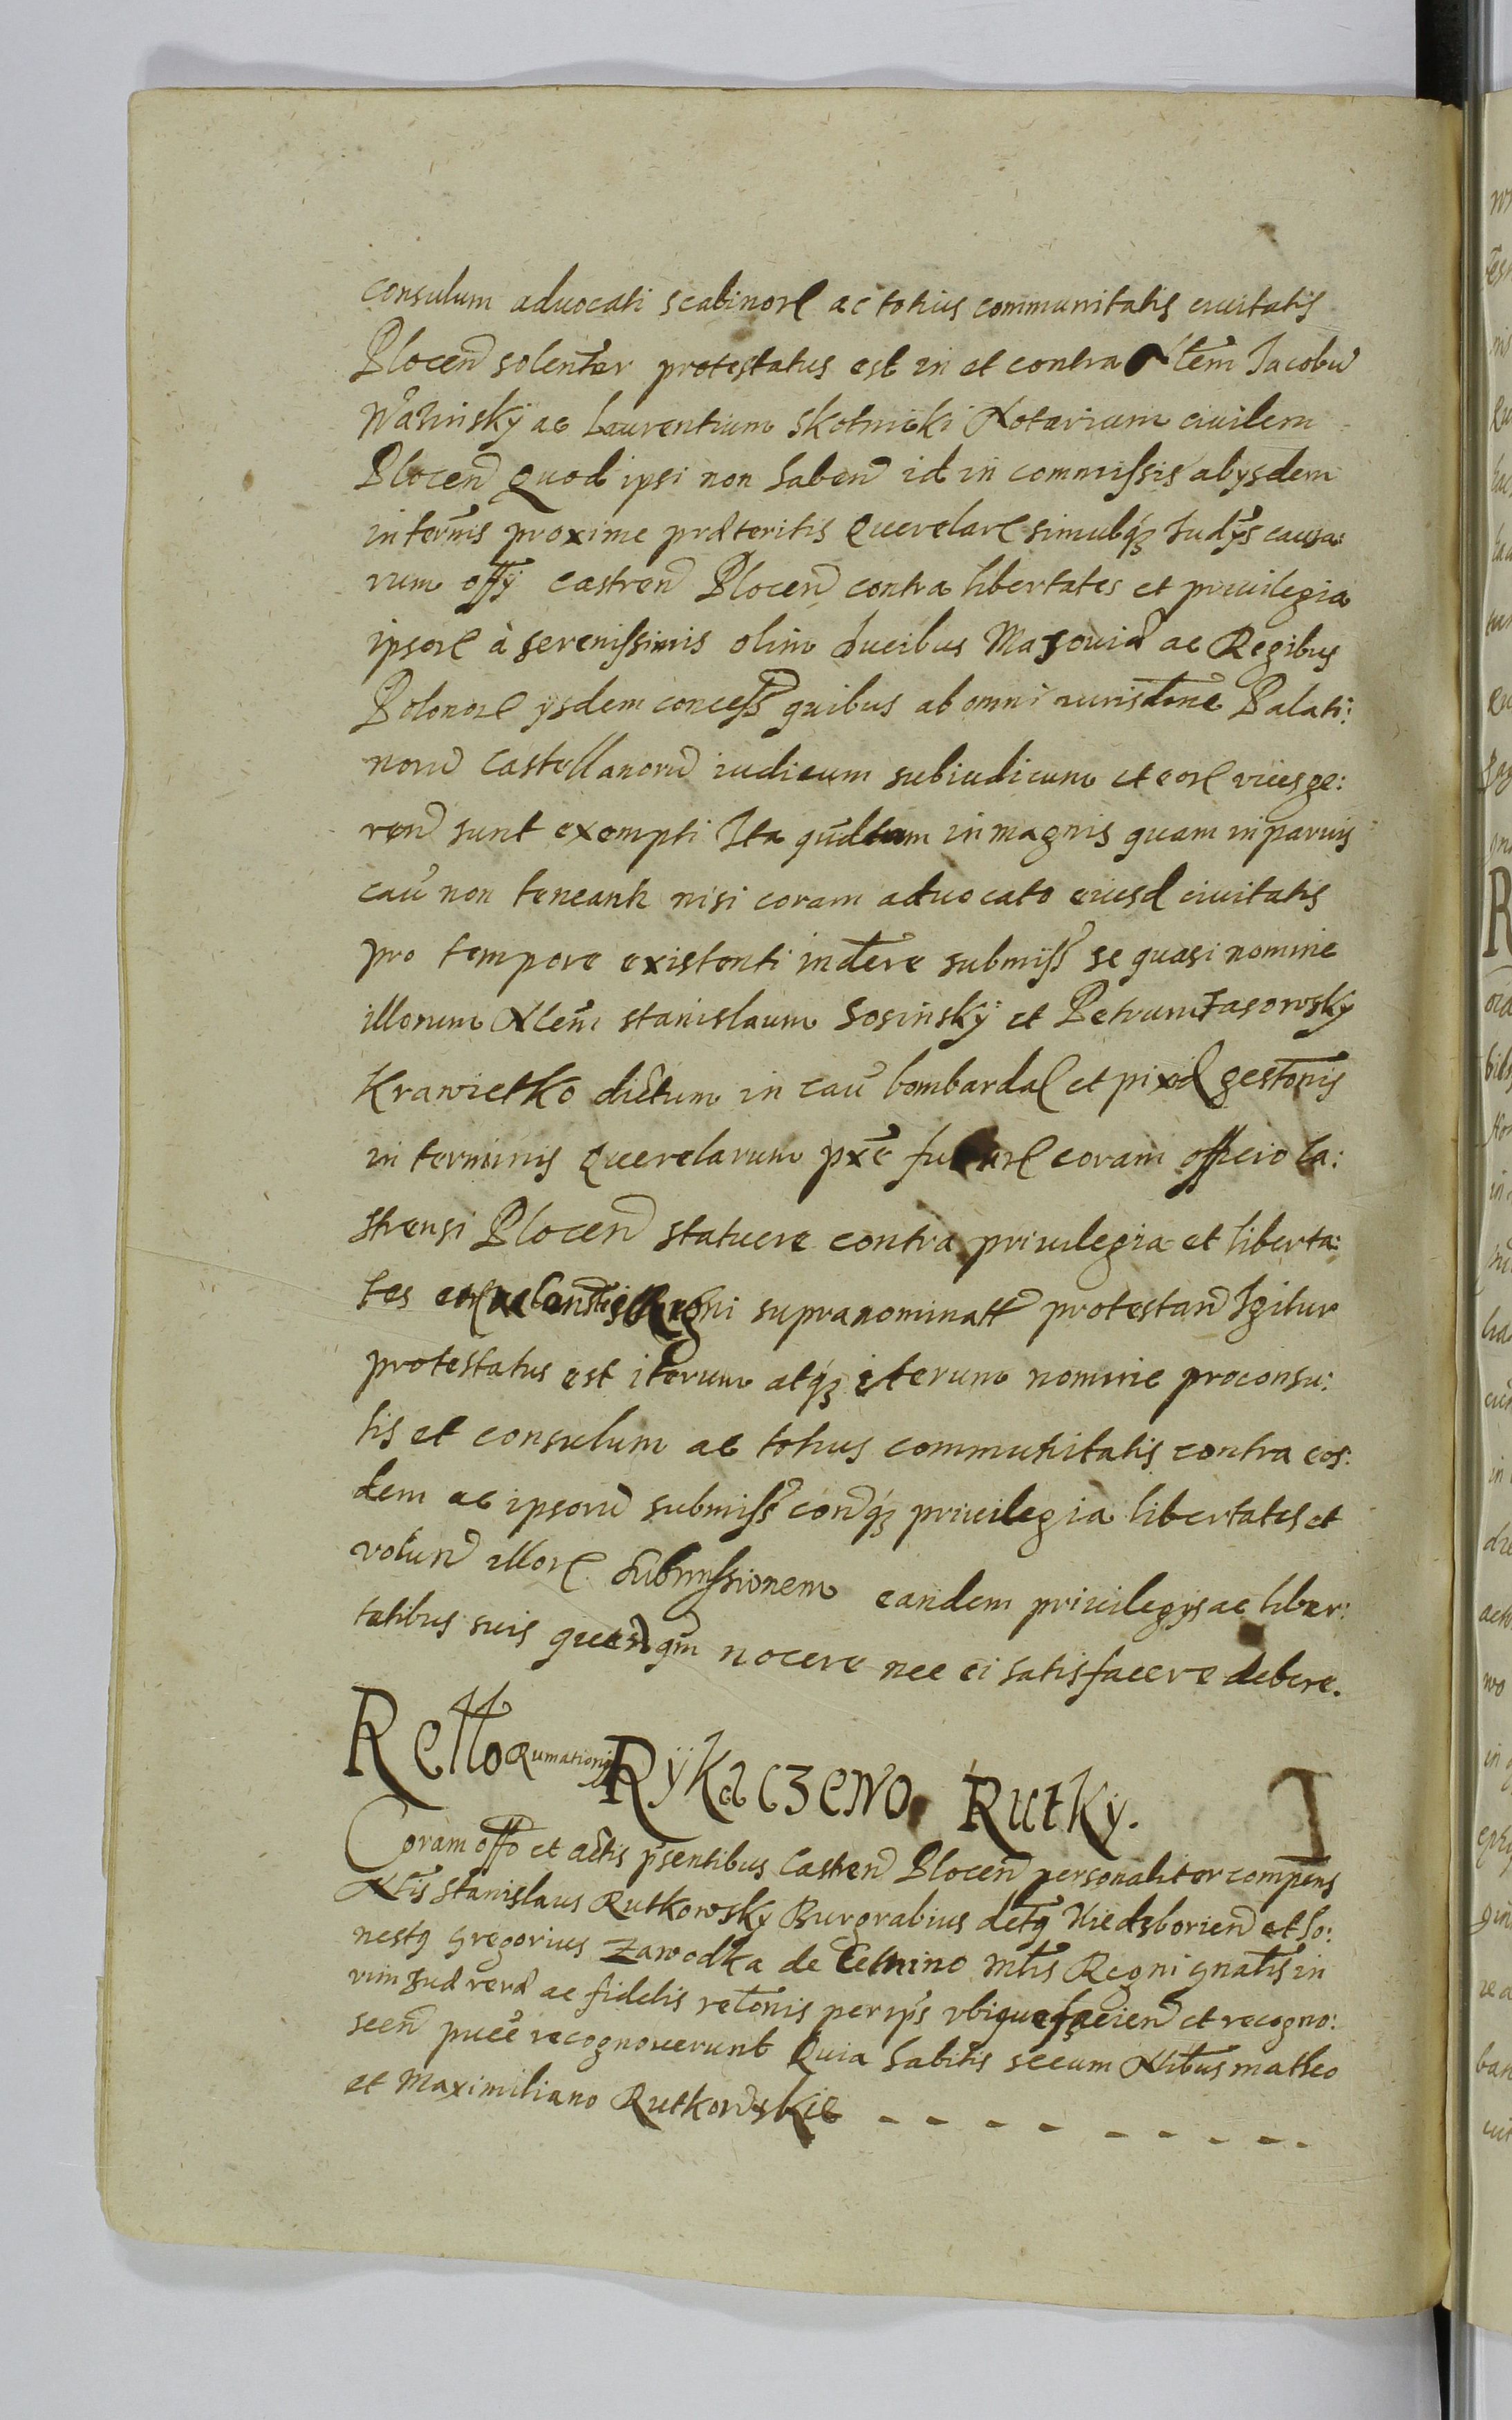 consulum aduocati scabinorꝭ ac totius communitatis ciuitatis
Plocen̄ solenter protestatus est in et contra Nlem Jacobū
Wazinskÿ ac Laurentium Skotnicki Notarium ciuilem
Plocen̄ Quod ipsi non haben̄ id in commissis ab ysdem
in ternis proxime præteritis Querelarꝭ simulqꝫ Judÿs causa:
rum offÿ castren̄ Plocen̄ contra libertates et priuilegia
ipsorꝭ à serenissimis olim ducibus Masouiæ ac Regibus
Polonorꝭ ysdem concess̄ quibus ab omni iurisdone Palati:
norū Castellanorū iudicum subiudicum et eorꝭ vicesge:
ren̄ sunt exempti Ita qūd tam in magnis quam in paruis
caū non teneantr nisi coram aduocato eiusd ciuitatis
pro tempore existenti indere submiss̄ se quasi nomine
illorum Nlem Stanislaum Sosinskÿ et Petrum Jasowsky
Krawietko dictum in caū bombardaꝭ et pixid gestonis
in terminis Querelarum pxē futurꝭ coram officio Ca:
strensi Plocen̄ statuere contra priuilegia et liberta:
tes supranominatt protestan̄ Igitur
protestatus est iterum atqꝫ iterum nomine proconsu:
lis et consulum ac totius communitatis contra eos:
dem ac ipsorū submiss̄ eorqꝫ priuilegia libertates et
volun̄ illorꝭ submissionem eandem priuilegÿs ac liber:
tatibus suis nocere nec ei satisfacere debere.
Retto Rumationis Rÿkaczewo Rutkÿ.
Coram offo et actis pn̄sentibus Castren̄ Plocen̄ personaliter compens
Nlis Stanislaus Rutkowsky Burgrabius Niedzborien̄ et ho:
nestꝯ Gregorius Zawodka de Mtis Regni gnatis in
vim Jud veræ ac fidelis retonis per ip̄s vbique facien̄ et recogno:
scen̄ recognouerunt Quia habitis secum Nlibus matheo
et Maximiliano Rutkowskie - - - - - - - - -